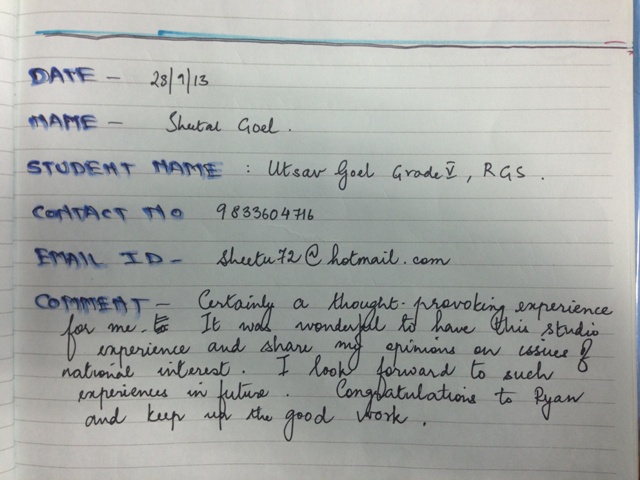 DATE - 28/9/13
NAME - Sheetal Goel.
STUDENT NAME : Utsav Goel Grade V, RGS.
CONTACT NO 9833604716
EMAIL ID - sheetu72@hotmail.com
COMMENT - Certainly a thought-provoking experience
for me. It was wonderful to have this studio
experience and share my opinions on issues of
national interest. I look forward to such
experiences in future. Congratulations to Ryan
and keep up the good work.